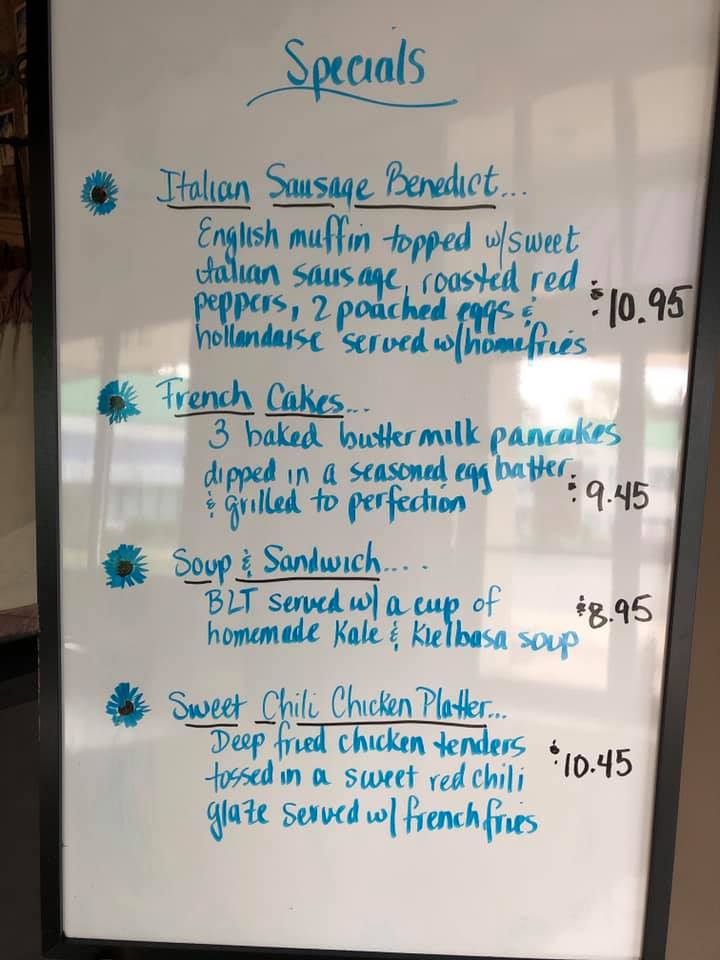 Specials
Italian Sausage Benedict...
English muffin topped w/sweet
italian sausage, roasted red
peppers, 2 poached eggs &
hollandaise served w/homefries
$10.95
French Cakes...
3 baked buttermilk pancakes
dipped in a seasoned egg batter
& grilled to perfection
$9.45
Soup & Sandwich....
BLT served w/ a cup of
homemade Kale & Kielbasa soup
$8.95
Sweet Chili Chicken Platter...
Deep fried chicken tenders
tossed in a sweet red chili
glaze served w/ french fries
$10.45